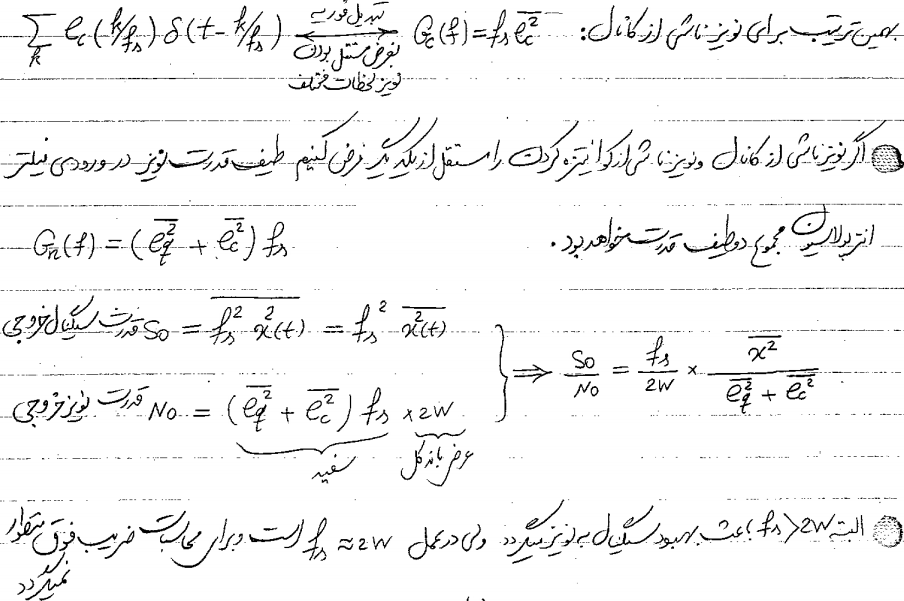 بهمین ترتیب برای نویز ناشی از کانال: $\sum_k e_c(k/f_s)\delta(t-k/f_s) \longleftrightarrow G_c(f)=f_s\overline{e_c^2}$
تبدیل فوریه
بفرض مستقل بودن
نویز لحظات مختلف
اگر نویز ناشی از کانال و نویز ناشی از کوانتیزه کردن را مستقل از یکدیگر فرض کنیم طیف قدرت نویز در ورودی فیلتر
انترپولاسیون مجموع دو طیف قدرت خواهد بود.
$G_n(f) = (\overline{e_q^2} + \overline{e_c^2}) f_s$
قدرت سیگنال خروجی $S_o = \overline{f_s^2 x^2(t)} = f_s^2 \overline{x^2(t)}$
$\Rightarrow \frac{S_o}{N_o} = \frac{f_s}{2W} \times \frac{\overline{x^2}}{\overline{e_q^2} + \overline{e_c^2}}$
قدرت نویز خروجی $N_o = (\overline{e_q^2} + \overline{e_c^2}) f_s \times 2W$
سفید عرض باند کل
البته $f_s > 2W$ باعث بهبود سیگنال به نویز میگردد ولی در عمل $f_s \approx 2W$ است و برای محاسبات ضریب فوق منظور
نمیگردد